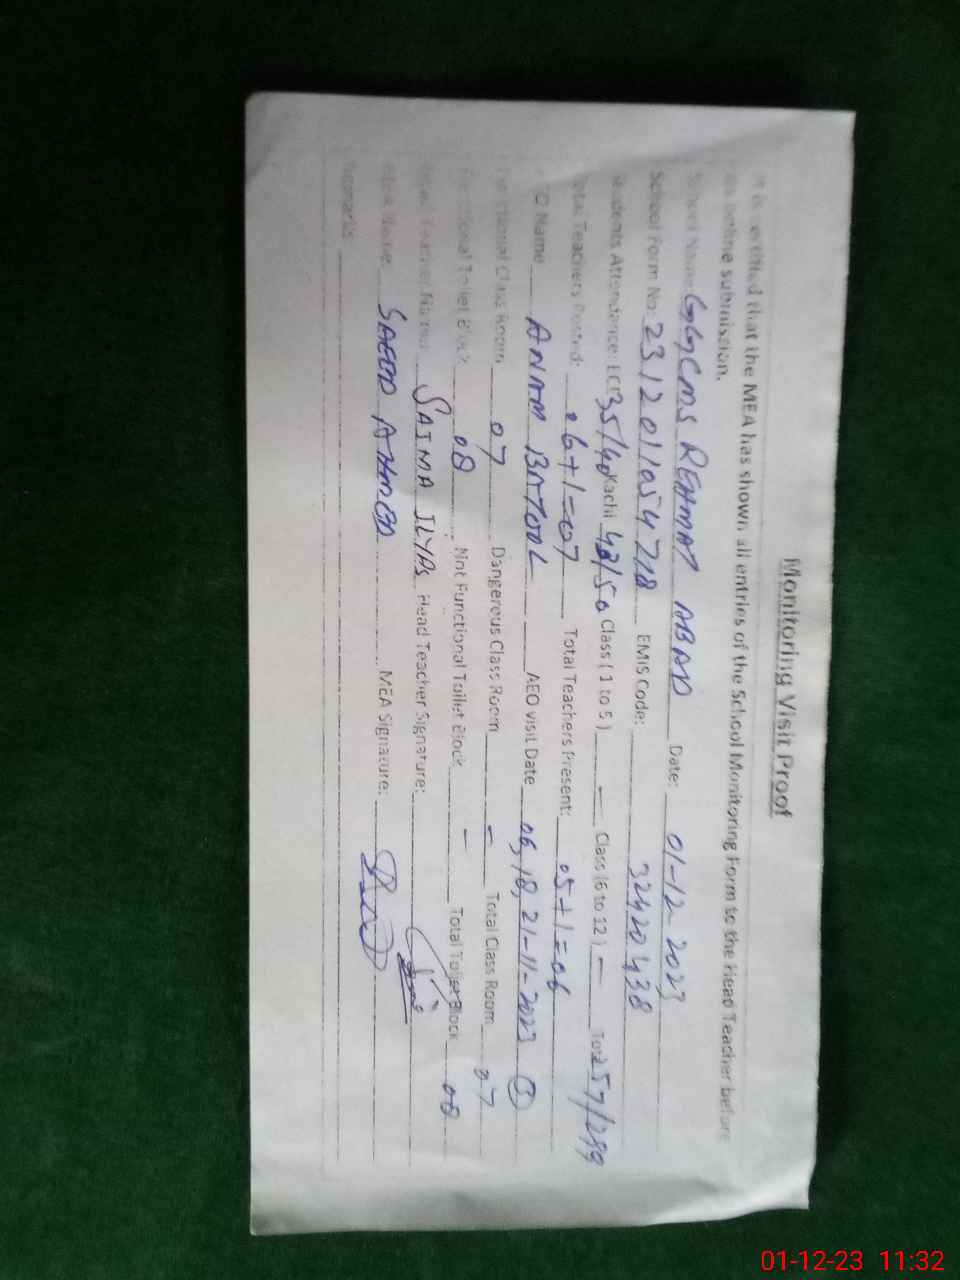 Monitoring Visit Proof
It is certified that the MEA has shown all entries of the School Monitoring Form to the Head Teacher before
online submission.
School Name GGCMS REHMAT ABAD Date: 01-12-2023
School Form No: 2312011054718 EMIS Code: 32420438
Students Attendance: ECE 35/40 Kachi 42/50 Class (1 to 5) — Class (6 to 12) — Tot 257/289
Total Teachers Posted: 06+1=07 Total Teachers Present: 05+1=06
AEO Name ANAM BATOOL AEO visit Date 06, 18, 21-11-2023
Functional Class Room 07 Dangerous Class Room – Total Class Room 07
Functional Toilet Block 08 Not Functional Toilet Block – Total Toilet Block 08
Head Teacher Name SAIMA ILYAS Head Teacher Signature:
MEA Name SAEED AHMED MEA Signature:
Remarks
01-12-23 11:32